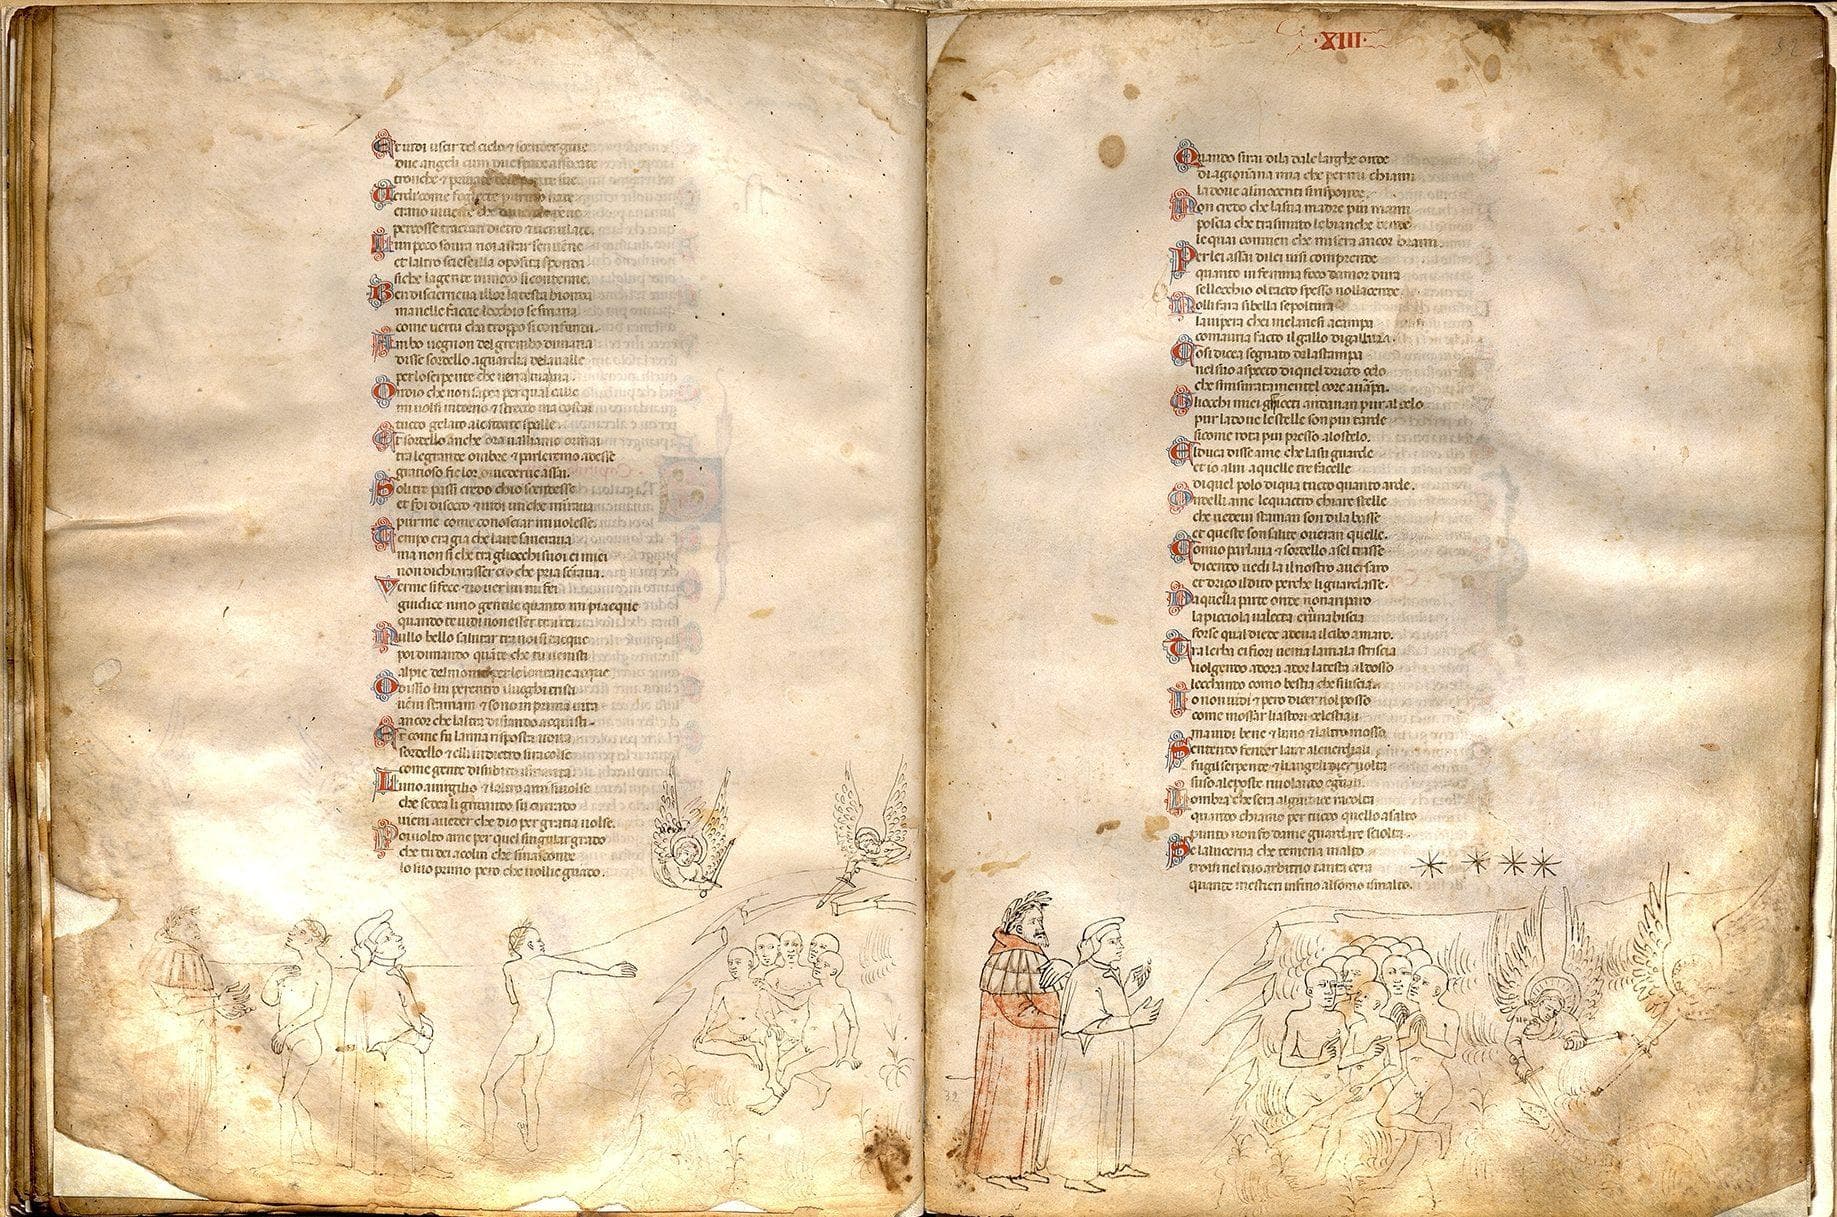 Et uidi uscir del cielo & scender giue
due angeli cum due spade affocate
tronche & priuate delle punte sue
Uerdi come fogliette pur mo nate
erano in ueste che da uerde penne
percosse traean dietro & uentilate.
Lun poco soura noi a star sen uenne
et laltro scese illa oposita sponda
siche la gente in meço si contenne.
Ben discerneua illor la testa bionda
ma nelle faccie locchio se smaria
come uertu cha troppo si confunda.
Ambo uegnon del grembo di maria
disse sordello a guardia dela ualle
per lo serpente che uerra uia uia.
Ondio che non sapea per qual calle
mi uolsi intorno & stretto ma costai
tutto gelato ale fidate spalle.
Et sordello anche ora ualliamo ormai
tra le grande ombre & parleremo adesse
gratioso fie lor uederue assai.
Soli tre passi credo chio scendesse
et foi di socto & uidi un che miraua
pur me come conoscer mi uolesse.
Tempo era gia che laire saneraua
ma non si che tra gliocchi suoi ei miei
non dichiarasser cio che pria seraua.
Verme si fece & io uer lui mi fei
giudice nino gentile quanto mi piacque
quando te uidi non esser tra rei.
Nullo bello salutar tra noi si tacque
poi dimando quante che tu uenisti
al pie del monte per le lontane acque
O dissio lui per entro i luoghi tristi
ueni staman & sono in prima uita
ancor che laltra si andando acquisti.
Et come fu la mia risposta udita
sordello & elli indietro si racolse
come gente di subito smarita
Luno a uirgilio & laltro a un si uolse
che sedea li gridando su currado
uieni a ueder che dio per gratia uolse.
Poi uolto a me per quel singular grado
che tu dei a colui che si nasconde
lo suo primo pero che nolli e guado.
·XIII·
Quando sirai di la dale larghe onde
di a giouana mia che per mi chiami
la doue alinocenti si risponde.
Non credo che la sua madre piu mami
poscia che trasmuto le bianche bende
le quai conuien che misera ancor brami.
Per lei assai di lei uisi comprende
quanto in femina foco damor dura
sellocchio ol tacto spesso nollacende.
Nolli fara si bella sepoltura
la uipera chei melanesi acampa
comauria facto il gallo di gallura.
Cosi dicea segnato dela stampa
nel suo aspecto di quel dricto celo
che sinsuratamente il core auampa.
Gliocchi miei ghiocti andauan pur al celo
pur la doue le stelle son piu tarde
sicome rota piu presso alo stelo.
El duca disse a me che lasu guarde
et io a lui a quelle tre facelle
di quel polo di qua tucto quanto arde.
Ondelli a me le quactro chiare stelle
che uedeui staman son di la basse
et queste son salite oueran quelle.
Comio parlaua & sordello a sel trasse
dicendo uedi la il nostro auersaro
et driço il dito perche li guardasse.
Da quella parte onde non a riparo
la picciola uallecta era una biscia
forse qual diede ad eua il cibo amaro.
Tra lerba ei fiori uenia la mala striscia
uolgendo adora ador la testa al dosso
lecchando como bestia che si liscia.
Io non uidi & pero dicer nol posso
come mossar li astori celestiali
ma uidi bene & luno & laltro mosso.
Sentendo fender laire ale uerdi ali
fugi l serpente & li angeli dier uolta
suso ale poste riuolando eguali.
Lombra che sera al giudice racolta
quando chiamo per tucto quello asalto
punto non fo da me guardare sciolta.
Se la lucerna che te mena in alto
troui nel tuo arbitrio tanta cera
quante mestieri infino al somo ismalto.